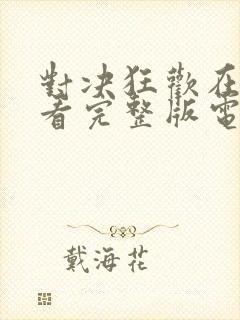 對决狂歡在
看完整版電
戴海花